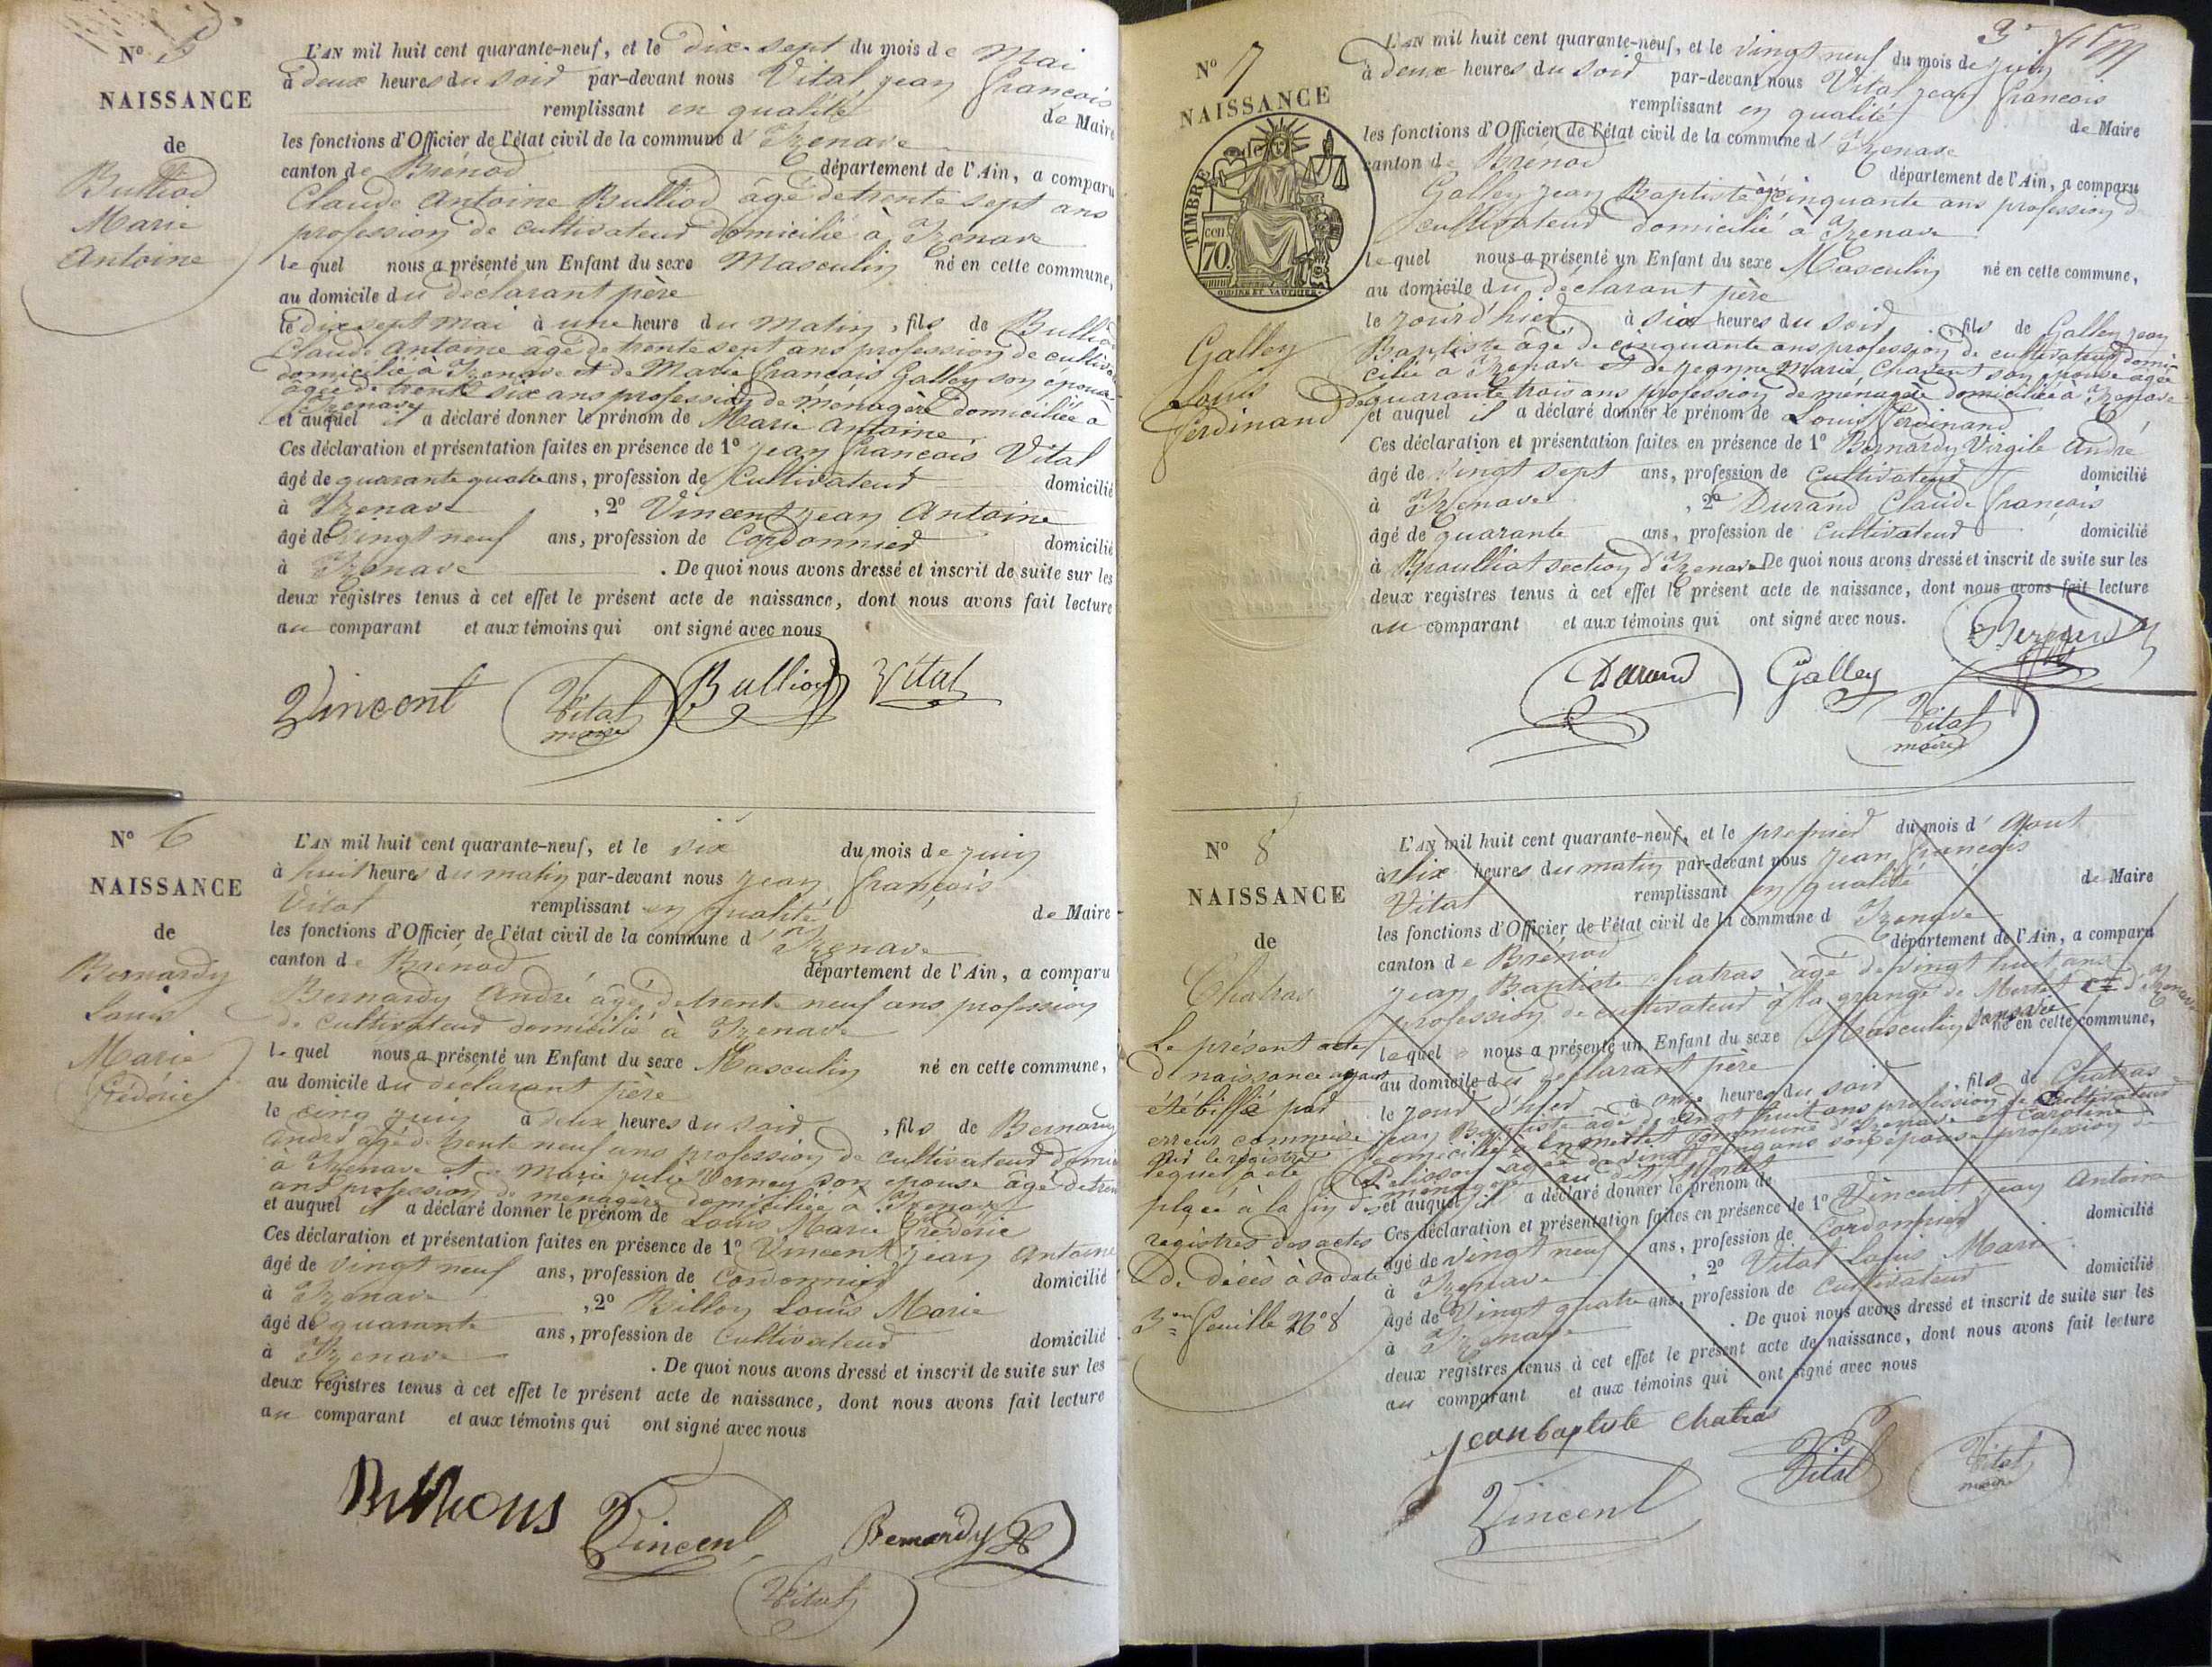 N° 5
NAISSANCE
de
Bulliod
Marie
Antoine
L'AN mil huit cent quarante-neuf, et le dix-sept du mois de Mai
à deux heures du soir par-devant nous Vital jean françois
remplissant en qualité de Maire
les fonctions d'Officier de l'état civil de la commune d' Izenave
canton de Brénod département de l'Ain, a comparu
Claude Antoine Bulliod âgé de trente sept ans
profession de cultivateur domicilié à Izenave
lequel nous a présenté un Enfant du sexe Masculin né en cette commune,
au domicile du déclarant père
le dix sept mai à une heure du matin, fils de Bulliod
Claude Antoine âgé de trente sept ans profession de cultiva
domicilié à Izenave et de Marie françois Galley son épouse
âgée de trente six ans profession de ménagère domiciliée à
Izenave
et auquel il a déclaré donner le prénom de Marie Antoine.
Ces déclaration et présentation faites en présence de 1° jean françois Vital
âgé de quarante quatre ans, profession de Cultivateur domicilié
à Izenave, 2° Vincent jean Antoine
âgé de vingt neuf ans, profession de Cordonnier domicilié
à Izenave. De quoi nous avons dressé et inscrit de suite sur les
deux registres tenus à cet effet le présent acte de naissance, dont nous avons fait lecture
au comparant et aux témoins qui ont signé avec nous
Vincent Vital maire Bulliod Vital
N° 6
NAISSANCE
de
Bernardy
Louis
Marie
frédéric
L'AN mil huit cent quarante-neuf, et le six du mois de juin
à huit heures du matin par-devant nous jean françois
Vital remplissant en qualité de Maire
les fonctions d'Officier de l'état civil de la commune d' Izenave
canton de Brénod département de l'Ain, a comparu
Bernardy André âgé de trente neuf ans profession
de cultivateur domicilié à Izenave
lequel nous a présenté un Enfant du sexe Masculin né en cette commune,
au domicile du déclarant père
le cinq juin à deux heures du soir, fils de Bernardy
André âgé de trente neuf ans profession de cultivateur domi
à Izenave et de Marie julie Verney son épouse âgé de tren
ans profession de ménagère domiciliée à Izenave
et auquel il a déclaré donner le prénom de Louis Marie frédéric
Ces déclaration et présentation faites en présence de 1° Vincent jean Antoine
âgé de vingt neuf ans, profession de Cordonnier domicilié
à Izenave, 2° Billon Louis Marie
âgé de quarante ans, profession de Cultivateur domicilié
à Izenave. De quoi nous avons dressé et inscrit de suite sur les
deux registres tenus à cet effet le présent acte de naissance, dont nous avons fait lecture
au comparant et aux témoins qui ont signé avec nous
Vincent Bernardy
Vital
3e
N° 7
NAISSANCE
de
TIMBRE
cen. 70.
Galley
Louis
ferdinand
L'AN mil huit cent quarante-neuf, et le vingt neuf du mois de juin
à deux heures du soir par-devant nous Vital jean françois
remplissant en qualité de Maire
les fonctions d'Officier de l'état civil de la commune d' Izenave
canton de Brénod département de l'Ain, a comparu
Galley jean Baptiste âgé cinquante ans profession d
cultivateur domicilié à Izenave
lequel nous a présenté un Enfant du sexe Masculin né en cette commune,
au domicile du déclarant père
le jour d'hier à six heures du soir, fils de Galley jean
Baptiste âgé de cinquante ans profession de cultivateur domi-
cilié à Izenave et de jeanne Marie son épouse âgée
de quarante trois ans profession de ménagère domiciliée à Izenave
et auquel il a déclaré donner le prénom de Louis ferdinand
Ces déclaration et présentation faites en présence de 1° Bernardy Virgile André
âgé de vingt sept ans, profession de Cultivateur domicilié
à Izenave, 2° Durand Claude françois
âgé de quarante ans, profession de Cultivateur domicilié
à section d'Izenave De quoi nous avons dressé et inscrit de suite sur les
deux registres tenus à cet effet le présent acte de naissance, dont nous avons fait lecture
au comparant et aux témoins qui ont signé avec nous.
Durand Galley
Vital
maire
N° 8
NAISSANCE
de
Chatras
Le présent acte
de naissance ayant
été biffé par
erreur commise
sur le registre
lequel a été
placé à la fin des
registres des actes
de décès à sa date
3me feuille N° 8
L'AN mil huit cent quarante-neuf, et le premier du mois d' Aout
à dix heures du matin par-devant nous jean françois
Vital remplissant en qualité de Maire
les fonctions d'Officier de l'état civil de la commune d Izenave
canton de Brénod département de l'Ain, a comparu
jean Baptiste Chatras âgé de vingt huit ans
profession de cultivateur à la grange de d'Izenave
lequel nous a présenté un Enfant du sexe Masculin sans vie né en cette commune,
au domicile du déclarant père
le jour d'hier à onze heures du soir, fils de Chatras
jean Baptiste âgé de vingt huit ans profession de Cultivateur
domicilié à commune d'Izenave et Caroline
Pelisson âgée de vingt cinq ans son épouse profession de
ménagère au dit
et auquel il a déclaré donner le prénom de
Ces déclaration et présentation faites en présence de 1° Vincent jean Antoine
âgé de vingt neuf ans, profession de Cordonnier domicilié
à Izenave, 2° Vital Louis Marie
âgé de vingt quatre ans, profession de Cultivateur domicilié
à Izenave. De quoi nous avons dressé et inscrit de suite sur les
deux registres tenus à cet effet le présent acte de naissance, dont nous avons fait lecture
au comparant et aux témoins qui ont signé avec nous
jean baptiste chatras
Vincent Vital Vital
maire